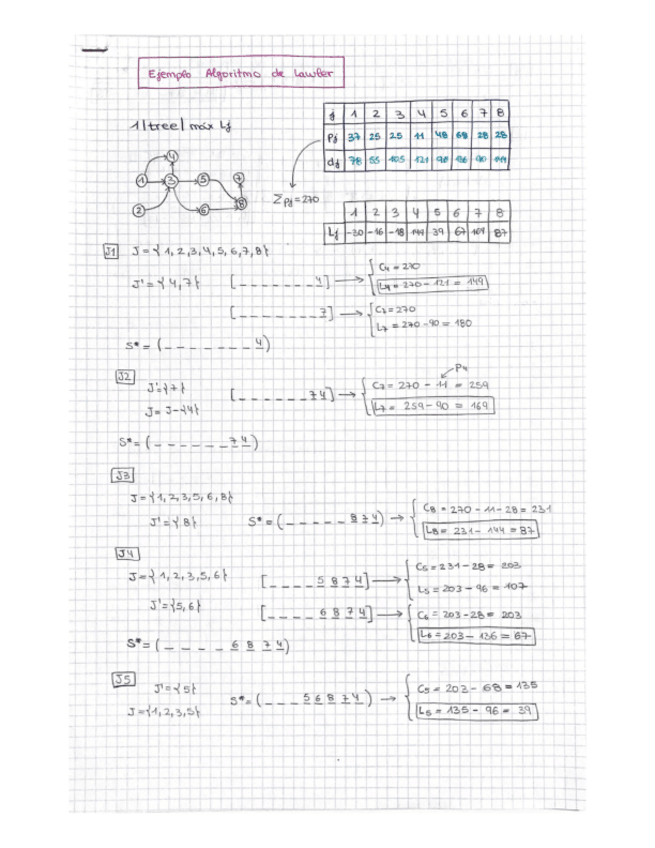 Ejemplo Algoritmo de Lawler
1|tree| máx Lj
j 1 2 3 4 5 6 7 8
Pj 37 25 25 11 48 68 28 28
dj 78 55 105 121 96 136 90 144
1 2 3 4 5 6 7 8
Σ Pj = 270
1 2 3 4 5 6 7 8
Lj -30 -16 -18 149 39 67 169 87
J1 J = { 1, 2, 3, 4, 5, 6, 7, 8}
J' = { 4, 7} [_ _ _ _ _ _ _ 4] → { C4 = 270
L4 = 270 - 121 = 149
[_ _ _ _ _ _ _ 7] → { C7 = 270
L7 = 270 - 90 = 180
S* = (_ _ _ _ _ _ _ 4)
J2
P4
J' = {7} [_ _ _ _ _ _ 7 4] → { C7 = 270 - 11 = 259
J = J - {4} L7 = 259 - 90 = 169
S* = (_ _ _ _ _ _ 7 4)
J3
J = {1, 2, 3, 5, 6, 8}
J' = {8} S* = (_ _ _ _ _ 8 7 4) → { C8 = 270 - 11 - 28 = 231
L8 = 231 - 144 = 87
J4
J = { 1, 2, 3, 5, 6} [_ _ _ _ 5 8 7 4] → { C5 = 231 - 28 = 203
L5 = 203 - 96 = 107
J' = {5, 6} [_ _ _ _ 6 8 7 4] → { C6 = 203 - 28 = 203
L6 = 203 - 136 = 67
S* = (_ _ _ _ 6 8 7 4)
J5
J' = {5} S* = (_ _ _ 5 6 8 7 4) → { C5 = 203 - 68 = 135
J = {1, 2, 3, 5} L5 = 135 - 96 = 39